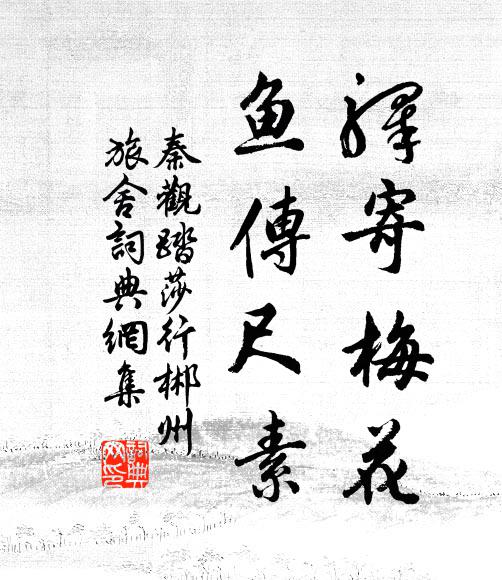 驛寄梅花
鱼傳尺素
秦觀踏莎行郴州
旅舍詞典網集